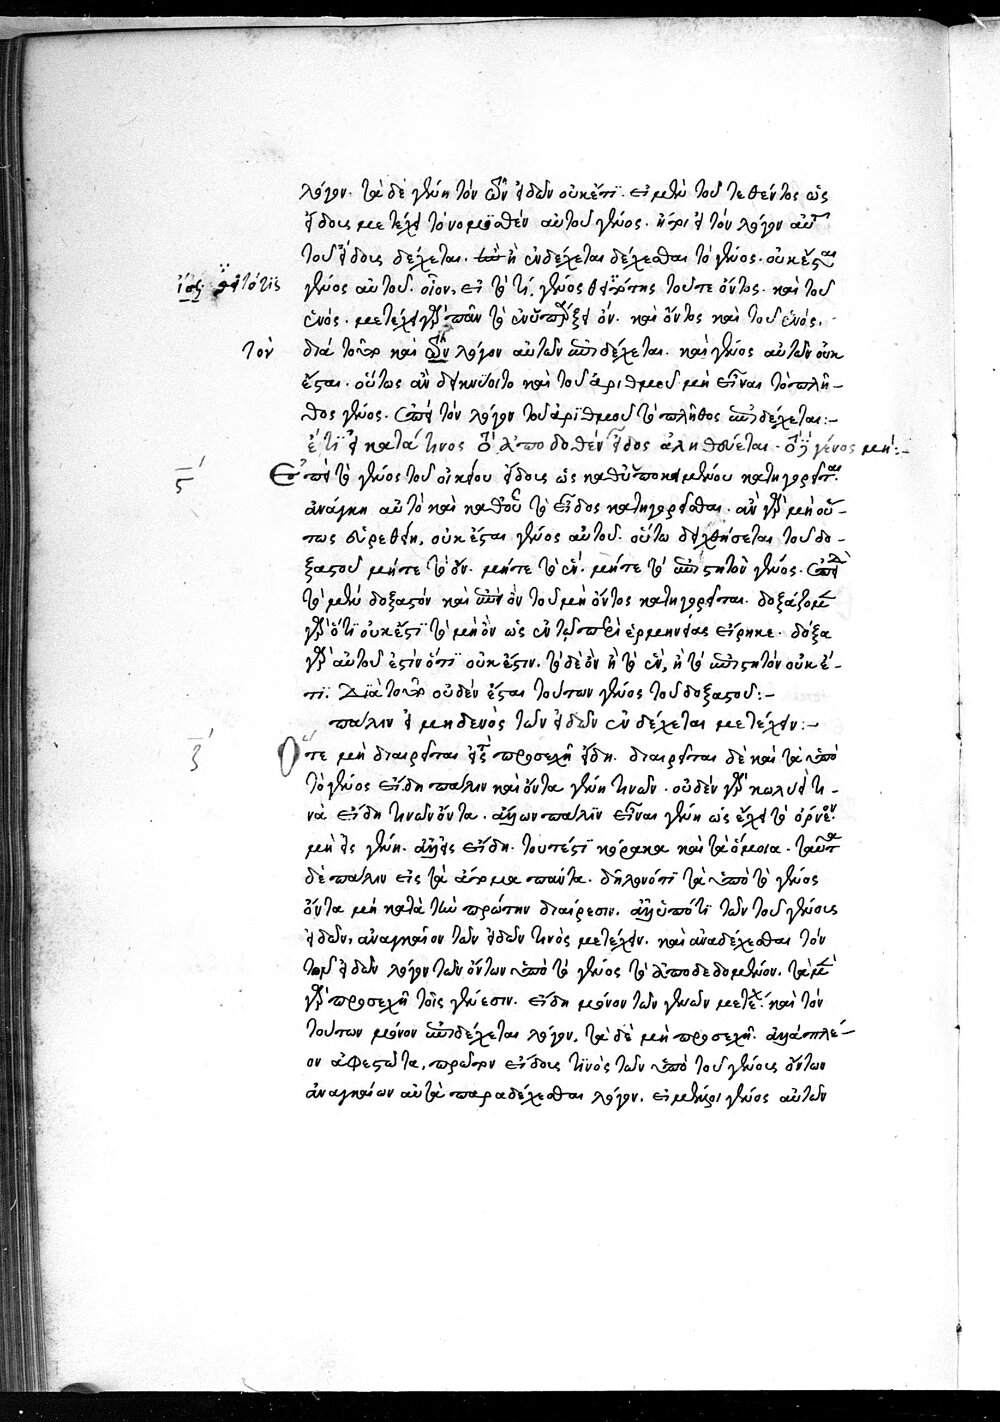 λόγον. τὰ δὲ γένη τὸν τῶν εἰδῶν οὐκέτι. εἰ μὲν τοῦ τεθέντος ὡς
εἴδους μετέχει τὸ νομισθὲν αὐτοῦ γένος. ἤτοι τὸν λόγον αὐτοῦ
τοῦ εἴδους δέχεται. ἢ ἐνδέχεται δέχεσθαι τὸ γένος. οὐκ ἔσται
γένος αὐτοῦ. οἷον, εἰ τό τι γένος θείη τις τοῦ τε ὄντος. καὶ τοῦ
ἑνός. μετέχει γὰρ πᾶν τὸ ἐν ὑπάρξει ὄν. καὶ ὄντος καὶ τοῦ ἑνός.
τὸν
διὰ τοῦτο καὶ λόγον αὐτῶν ἐπιδέχεται. καὶ γένος αὐτῶν οὐκ
ἔσται. οὕτως ἂν δεικνύοιτο καὶ τοῦ ἀριθμοῦ μὴ εἶναι τὸ πλῆ-
θος γένος. ἐπεὶ τὸν λόγον τοῦ ἀριθμοῦ τὸ πλῆθος ἐπιδέχεται:-
ἔτι εἰ κατά τινος ὃ ἀποδοθὲν εἶδος ἀληθεύεται. γένος μή:-
ς
Ἐπεὶ τὸ γένος τοῦ οἰκείου εἴδους ὡς καθ' ὑποκειμένου κατηγορεῖται.
ἀνάγκη αὐτὸ καὶ καθ' οὗ τὸ εἶδος κατηγορεῖσθαι. ἂν γὰρ μὴ οὕ-
τως εὑρεθείη, οὐκ ἔσται γένος αὐτοῦ. οὕτω δειχθήσεται τοῦ δο-
ξαστοῦ μήτε τὸ ὄν. μήτε τὸ ἕν. μήτε τὸ ἐπιστητὸν γένος. ἐπειδὴ
τὸ μὲν δοξαστὸν καὶ τοῦ μὴ ὄντος κατηγορεῖται. δοξάζομεν
γὰρ ὅτι οὐκ ἔστι τὸ μὴ ὂν ὡς ἐν τῷ περὶ ἑρμηνείας εἴρηκε. δόξα
γὰρ αὐτοῦ ἐστὶν ὅτι οὐκ ἔστιν. τὸ δὲ ὂν ἢ τὸ ἕν, ἢ τὸ ἐπιστητὸν οὐκ έ-
τι. Διὰ τοῦτο οὐδὲν ἔσται τούτων γένος τοῦ δοξαστοῦ:-
πάλιν εἰ μηδενὸς τῶν εἰδῶν ἐνδέχεται μετέχειν:-
ζ
Ὅτε μὴ διαιρεῖται εἰς τὰ προσεχῆ εἴδη. διαιρεῖται δὲ καὶ τὰ ὑπὸ
τὸ γένος εἴδη πάλιν καὶ ὄντα γένη τινων. οὐδὲν γὰρ κωλύει τι-
νὰ εἴδη τινῶν ὄντα. ἄλλων πάλιν εἶναι γένη ὡς ἔχει τὸ ὄρνεον.
μὴ εἰς γένη. ἀλλ' εἰς εἴδη. τουτέστι κόρακα καὶ τὰ ὅμοια. ταῦτα
δὲ πάλιν εἰς τὰ ἄτομα πάντα. δηλονότι τὰ ὑπὸ τὸ γένος
ὄντα μὴ κατὰ τὴν πρώτην διαίρεσιν. ἀλλ' ὑπό τι τῶν τοῦ γένους
εἰδῶν, ἀναγκαῖον τῶν εἰδῶν τινὸς μετέχειν. καὶ ἀναδέχεσθαι τὸν
τῶν εἰδῶν λόγον τῶν ὄντων ὑπὸ τὸ γένος τὸ ἀποδεδομένον. τὰ μὲν
γὰρ προσεχῆ τοῖς γένεσιν. εἴδη μόνον τῶν γενῶν μετέχει. καὶ τὸν
τούτων μόνον ἐπιδέχεται λόγον. τὰ δὲ μὴ προσεχῆ. ἀλλὰ πλέ-
ον ἀφεστῶτα, πρῶτον εἴδους τινὸς τῶν ὑπὸ τοῦ γένους ὄντων
ἀναγκαίων αὐτὰ παραδέχεσθαι λόγον. εἰ μέντοι γένος αὐτῶν